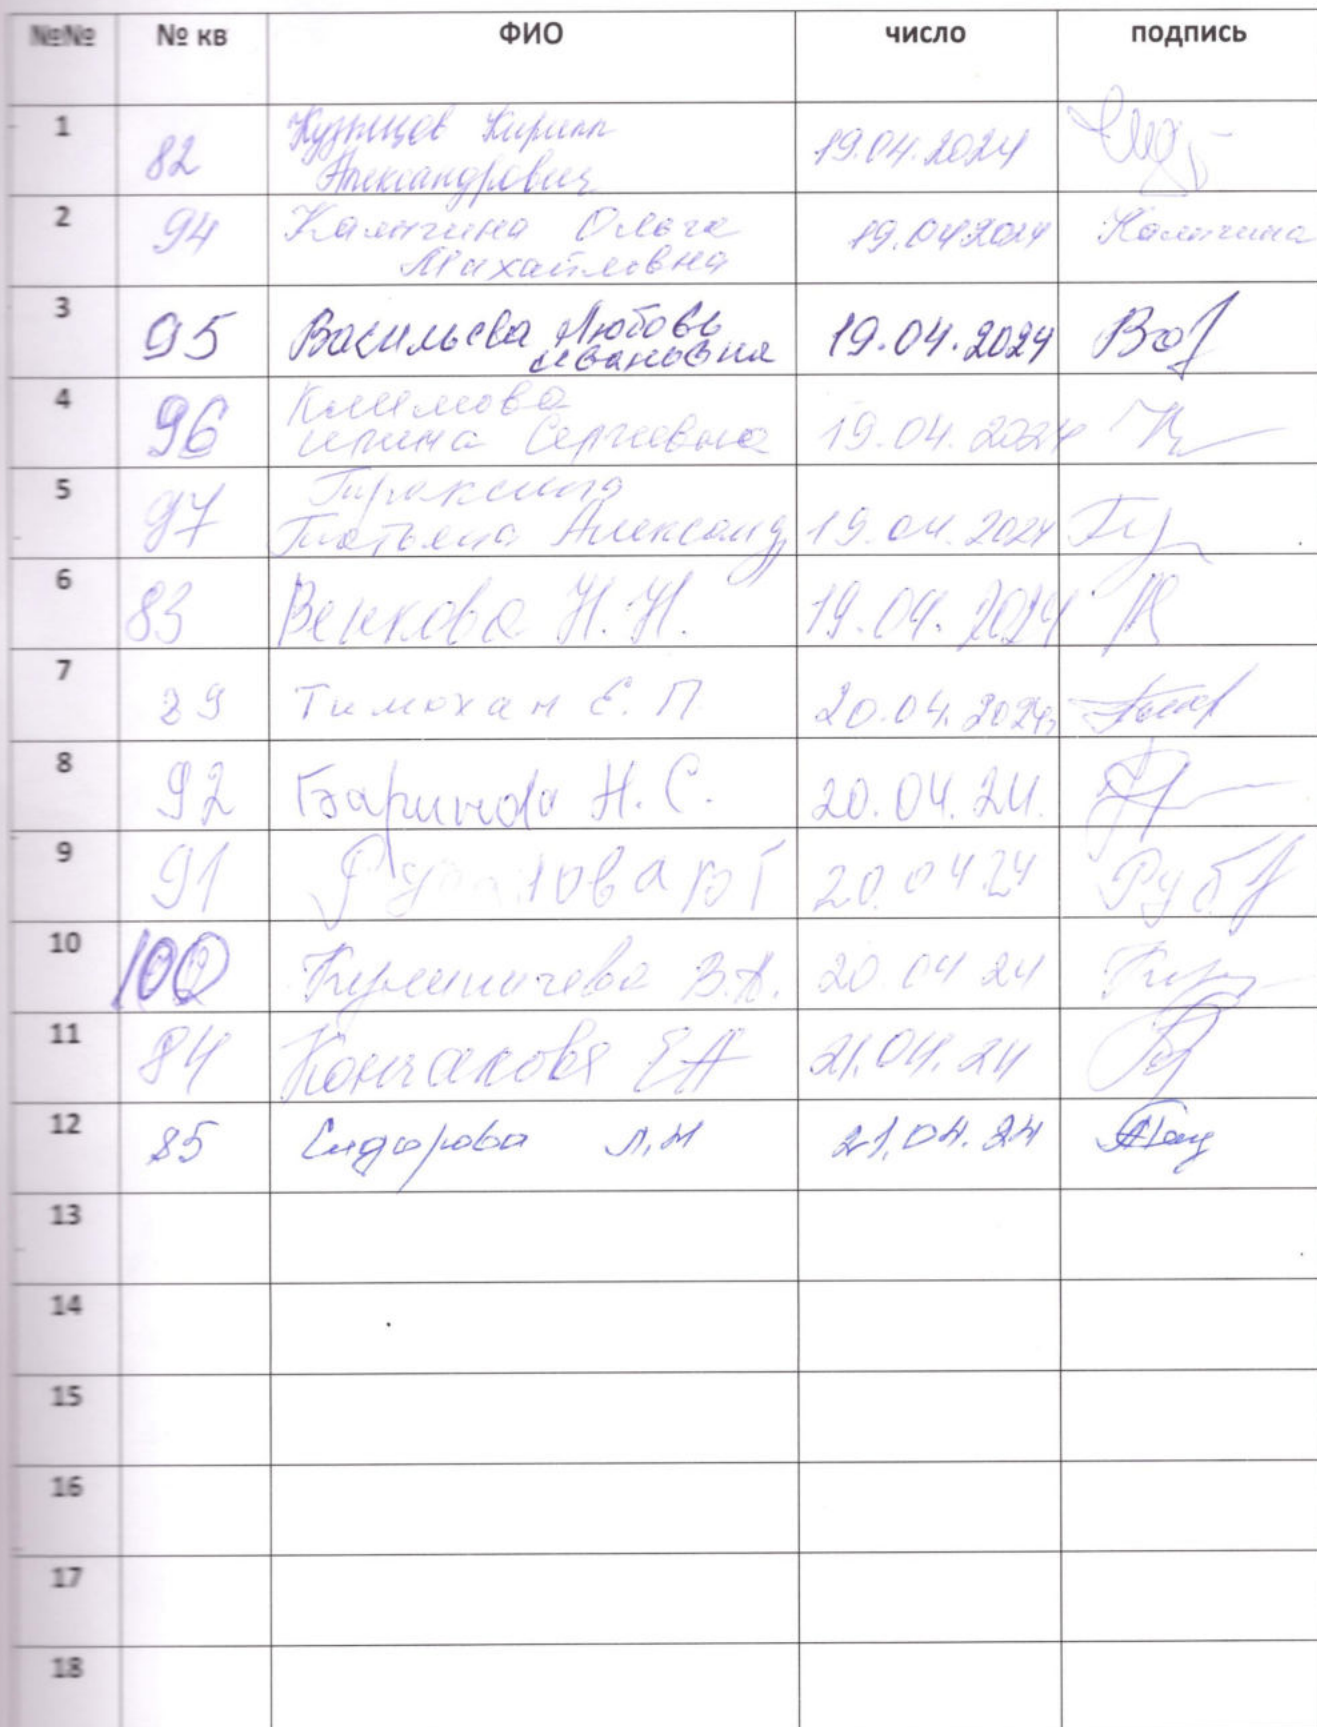 №№ № кв ФИО число подпись
1 82 Кузнецов Кирилл Александрович 19.04.2024
2 94 Калягина Ольга Михайловна 19.04.2024 Калягина
3 95 Васильева Любовь Ивановна 19.04.2024
4 96 Климова Ирина Сергеевна 19.04.2024
5 97 Татьяна Александ 19.04.2024
6 83 Венкова Н.Н. 19.04.2024
7 89 Тимохан Е.П. 20.04.2024
8 92 Баринова Н.С. 20.04.24.
9 91 20.04.24
10 100 В.А. 20 04 24
11 84 Кончакова ЕА 21.04.24
12 85 Сидорова Л.Н 21.04.24
13
14
15
16
17
18